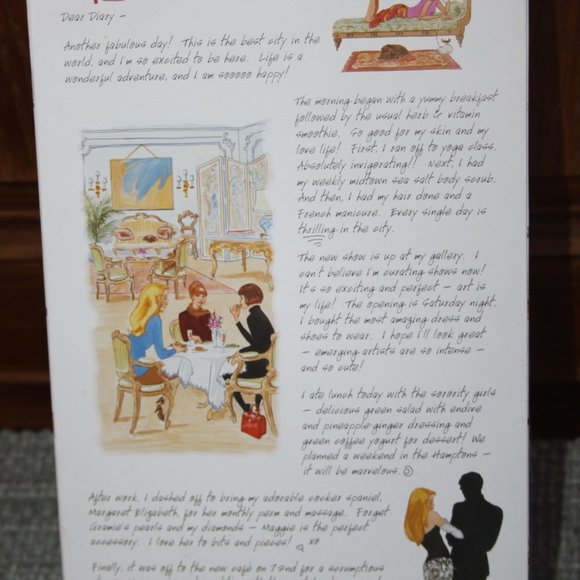 Dear Diary –
Another fabulous day! This is the best city in the
world, and I'm so excited to be here. Life is a
wonderful adventure, and I am sooooo happy!
The morning began with a yummy breakfast
followed by the usual herb & vitamin
smoothie. So good for my skin and my
love life! First, I ran off to yoga class.
Absolutely invigorating!! Next, I had
my weekly midtown sea salt body scrub.
And then, I had my hair done and a
French manicure. Every single day is
thrilling in the city.
The new show is up at my gallery. I
can't believe I'm curating shows now!
It's so exciting and perfect – art is
my life! The opening is Saturday night.
I bought the most amazing dress and
shoes to wear. I hope I'll look great –
– emerging artists are so intense –
and so cute!
I ate lunch today with the sorority girls
– delicious green salad with endive
and pineapple-ginger dressing and
green coffee yogurt for dessert! We
planned a weekend in the Hamptons –
it will be marvelous.
After work, I dashed off to bring my adorable cocker spaniel,
Margaret Elizabeth, for her monthly perm and massage. Forget
Gramie's pearls and my diamonds – Maggie is the perfect
accessory. I love her to bits and pieces! xo
Finally, it was off to the new café on 72nd for a scrumptious